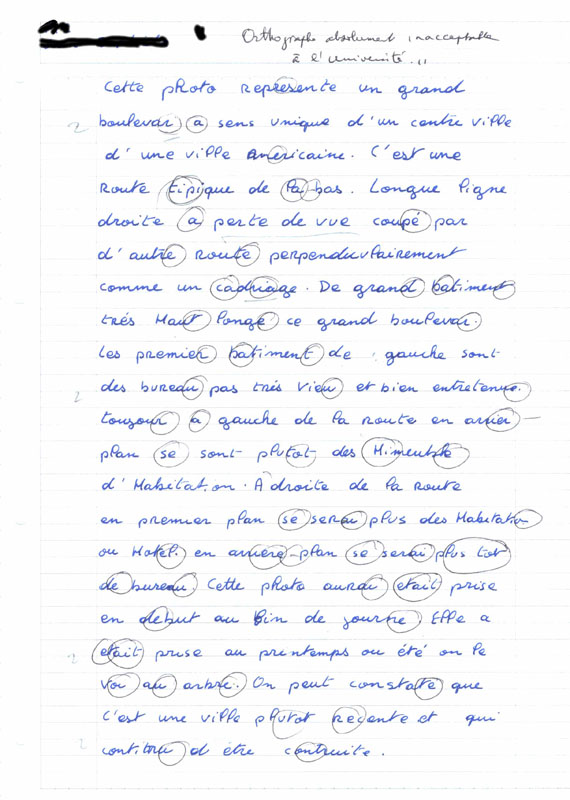 Orthographe absolument inacceptable
à l'université...
Cette photo représente un grand
boulevar a sens unique d'un centre ville
2
d'une ville américaine. C'est une
route tipique de la bas. Longue ligne
droite a perte de vue coupé par
d'autre route perpendiculairement
comme un cadriage. De grand batiment
très Haut longe ce grand boulevar.
Les premier batiment de gauche sont
des bureau pas très vieu et bien entretenue.
2
toujour a gauche de la route en arrier-
plan se sont plutot des
d'Habitation. A droite de la route
en premier plan se serai plus des Habitation
ou Hotel. en arrière-plan se serai plus tot
de bureau. Cette photo aurai etait prise
en debut au fin de journé Elle a
etait prise au printemps ou été on le
2
voi au arbre. On peut constate que
c'est une ville plutot recente et qui
continu d être contruite.
2